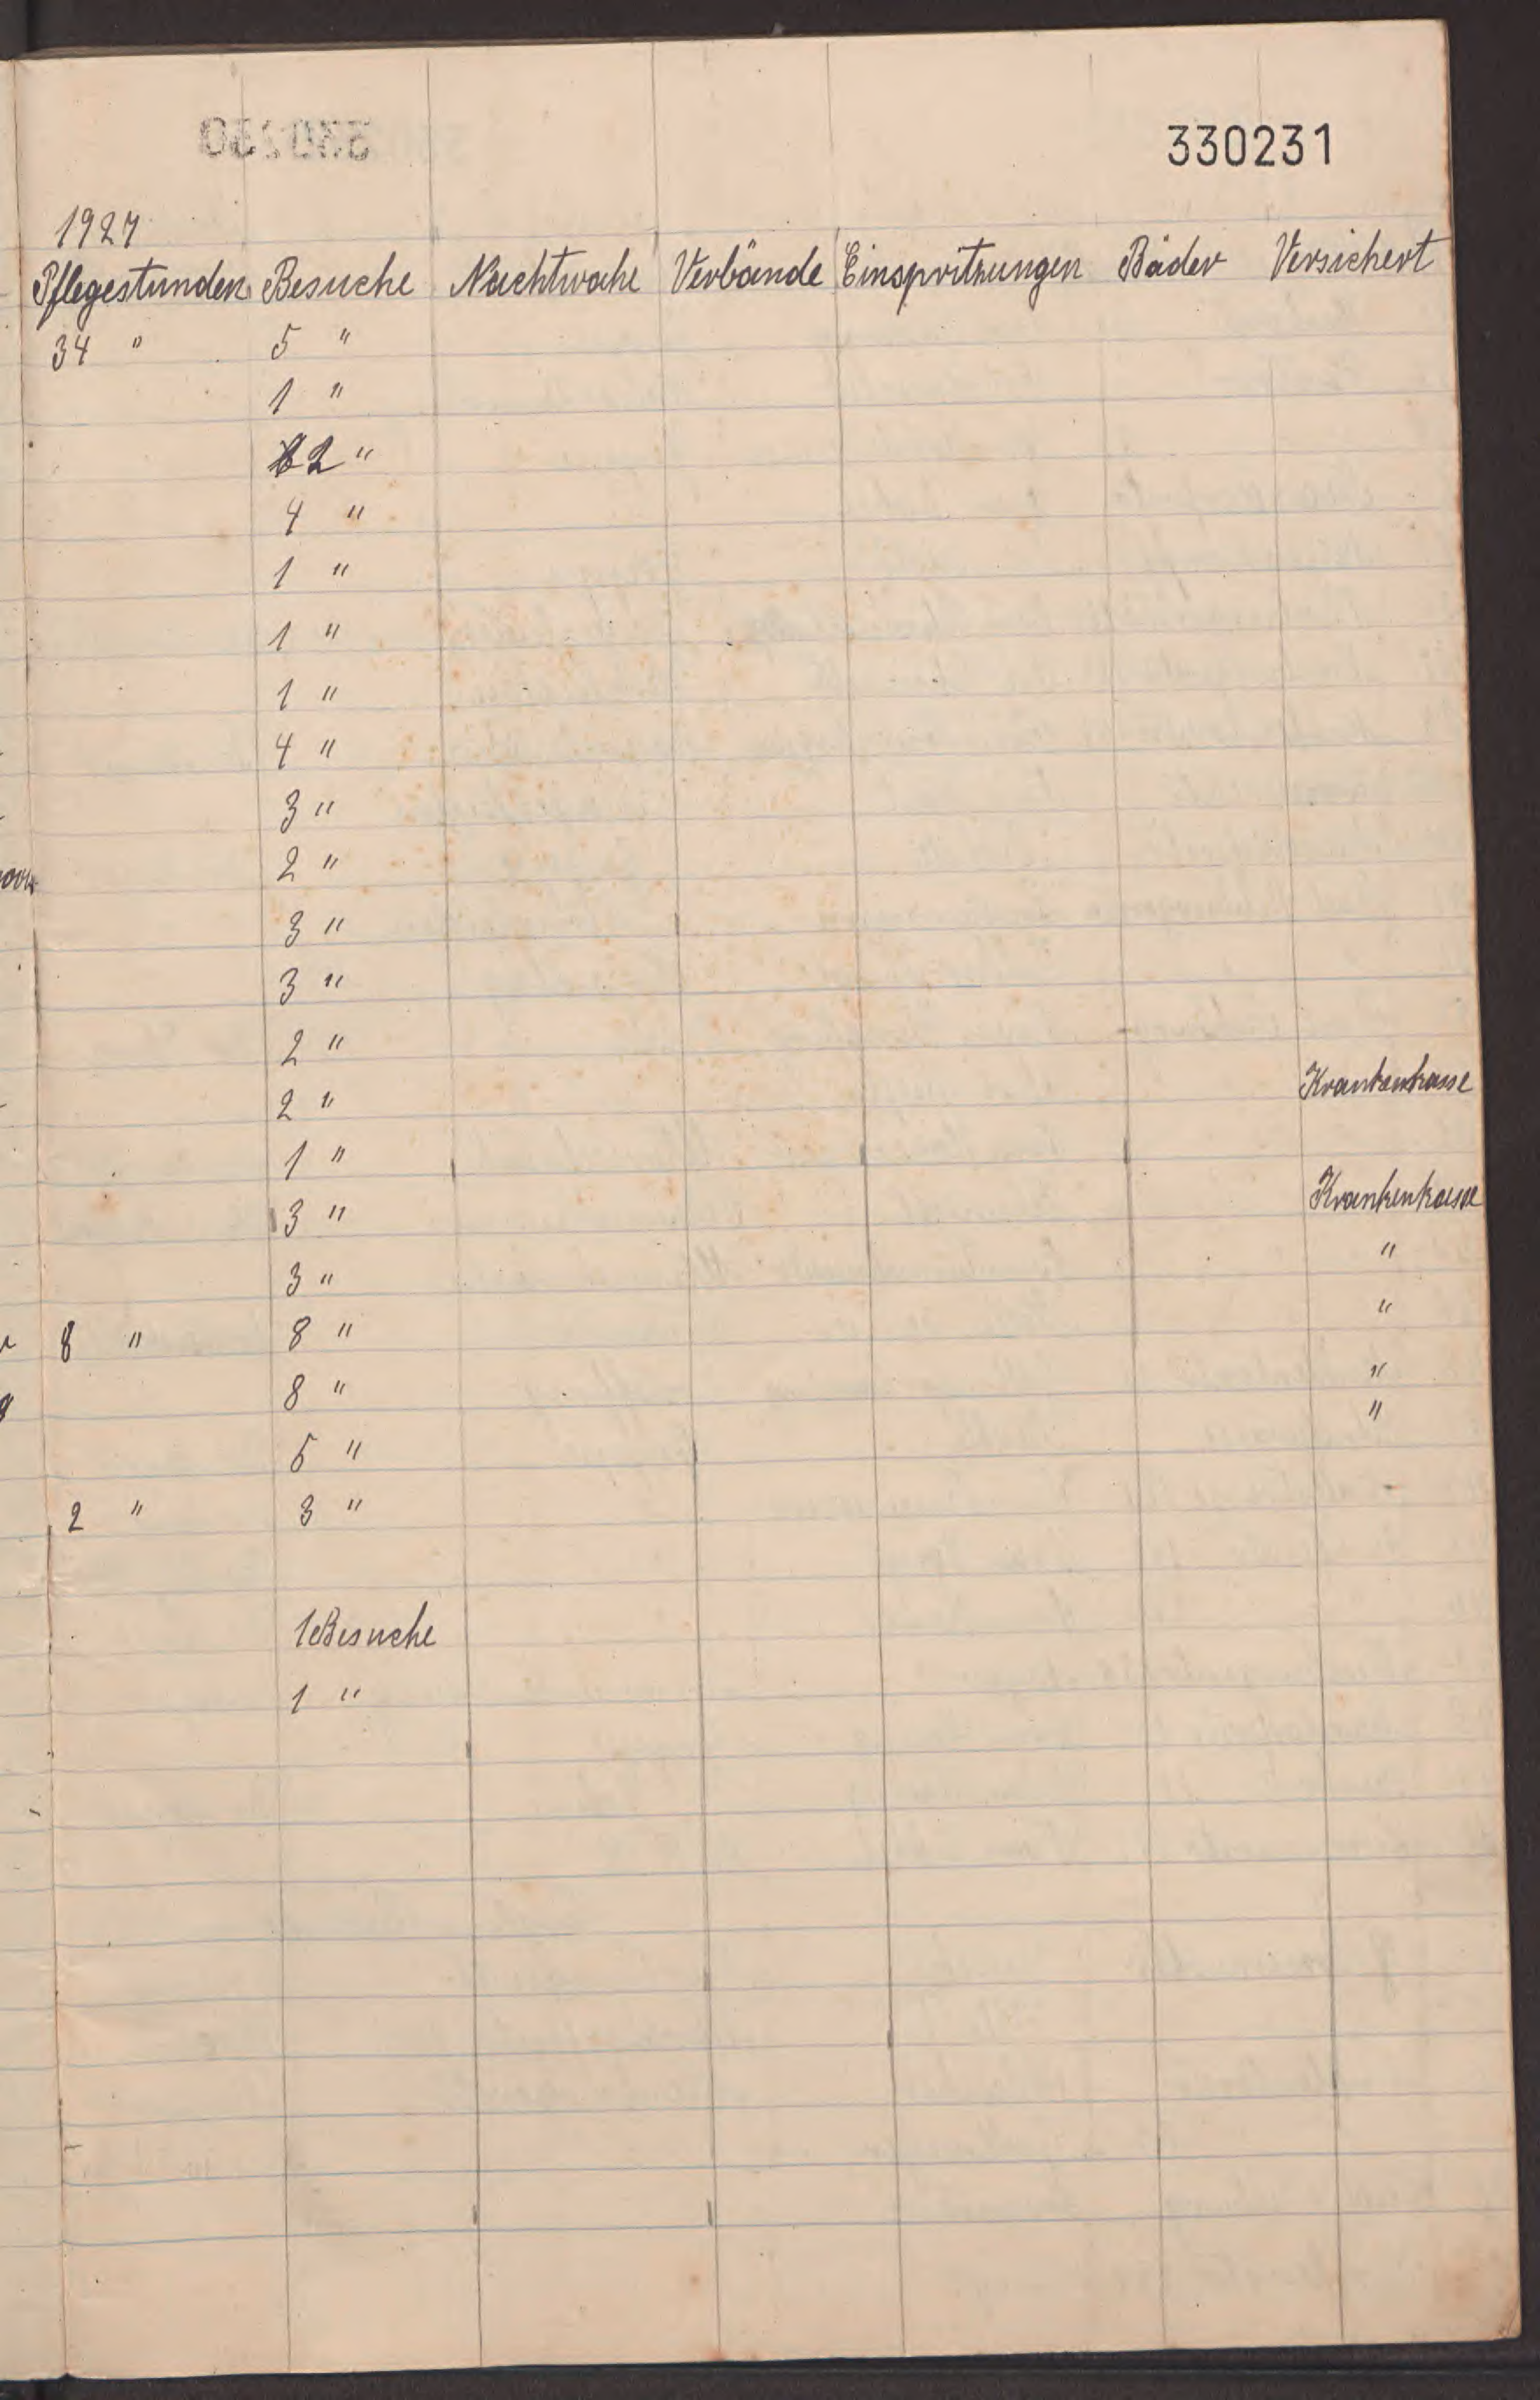 330231
1927
Pflegestunden Besuche Nachtwache Verbände Einspritzungen Bäder Versichert
34 " 5 "
1 "
2 "
4 "
1 "
1 "
1 "
4 "
3 "
2 "
3 "
3 "
2 "
2 " Krankenkasse
1 "
3 " Krankenkasse
3 " "
8 " 8 " "
8 " "
5 " "
2 " 3 "
1 Besuche
1 "